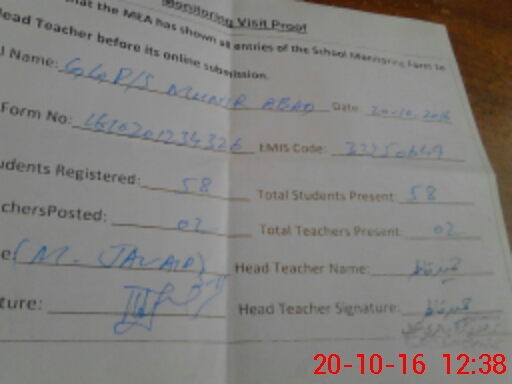 Monitoring Visit Proof
that the MEA has shown all entries of the School Monitoring Form to
Head Teacher before its online submission.
l Name: GGP/S MUNIR ABAD Date: 20-10-2016
Form No: EMIS Code: 33250649
udents Registered: 58 Total Students Present: 58
chersPosted: 02 Total Teachers Present: 02
e (M. JAVAID) Head Teacher Name:
ture: Head Teacher Signature:
20-10-16 12:38